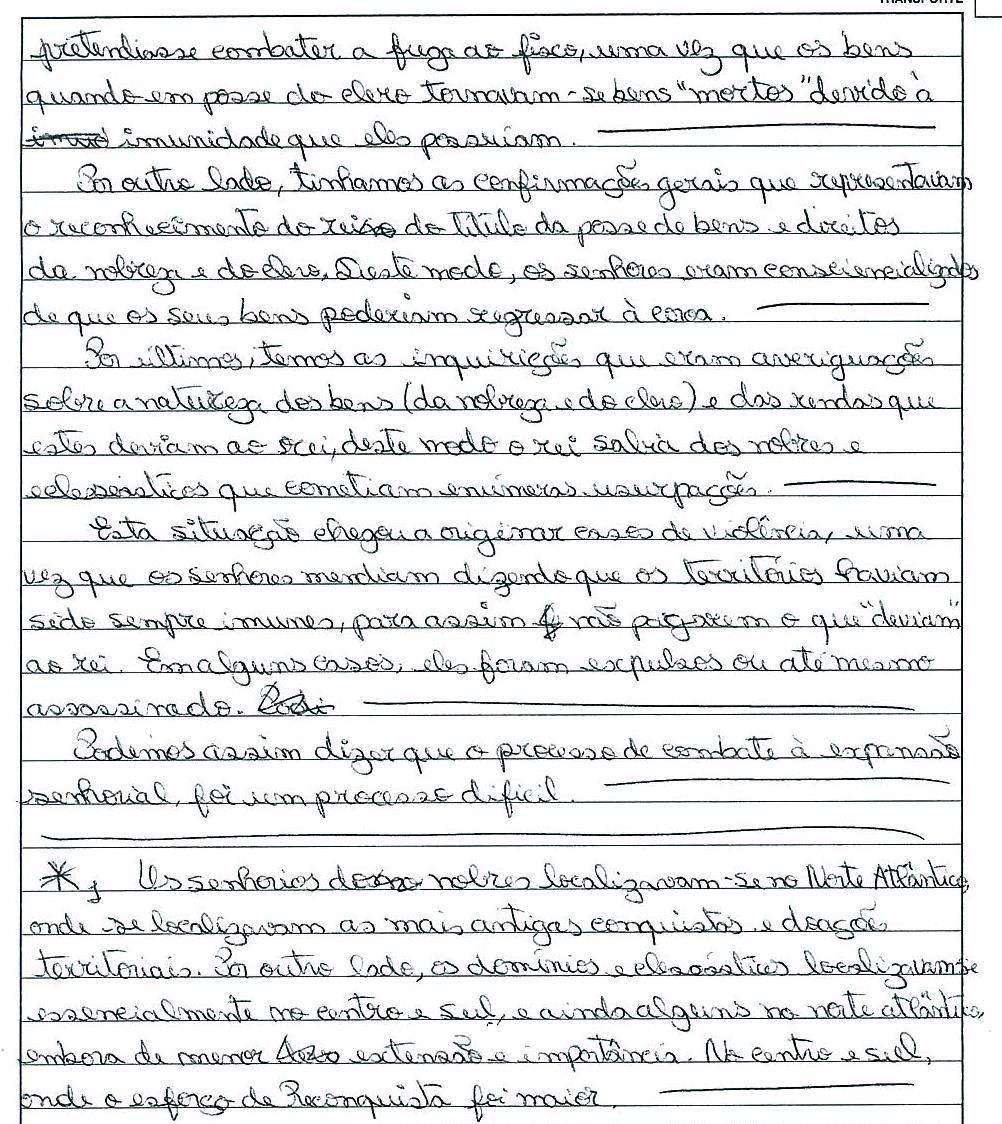 TRANSPORTE
pretendiasse combater a fuga ao fisco, uma vez que os bens
quando em posse do clero tornavam-se bens "mortos" devido à
imunidade que eles possuiam.
Por outro lado, tinhamos as confirmações gerais que representavam
o reconhecimento do rei do título da posse de bens e direitos
da nobreza e do clero. Deste modo, os senhores eram consciencializados
de que os seus bens poderiam regressar à coroa.
Por último, temos as inquirições que eram averiguações
sobre a natureza dos bens (da nobreza e do clero) e das rendas que
estes deviam ao rei, deste modo o rei sabia dos nobres e
eclesseiásticos que cometiam enúmeras usurpações.
Esta situação chegou a originar casos de violência, uma
vez que os senhores mentiam dizendo que os territórios haviam
sido sempre imunes, para assim não pagarem o que "deviam"
ao rei. Em alguns casos, eles foram expulsos ou até mesmo
assassinado.
Podemos assim dizer que o processo de combate à expansão
senhorial, foi um processo dificil.
* Os senhorios de nobres localizavam-se no Norte Atlântico,
onde se localizavam as mais antigas conquistas e doações
territoriais. Por outro lado, os domínios eclesiásticos localizavam-se
essencialmente no centro e sul, e ainda alguns no norte atlântico,
embora de menor extensão e importância. No centro e sul,
onde o esforço de Reconquista foi maior.